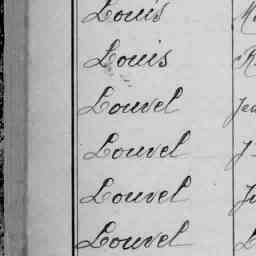 Louis
Louis
Louvel
Louvel
Louvel
Louvel